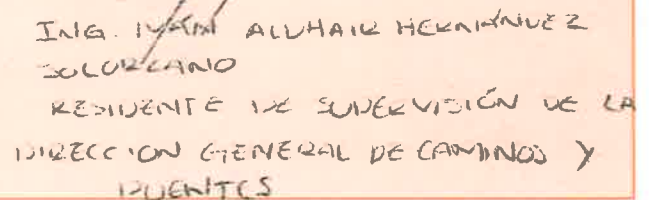 ING. IVÁN ALDHAIR HERNÁNDEZ
SOLORZANO
RESIDENTE DE SUPERVISIÓN DE LA
DIRECCION GENERAL DE CAMINOS Y
PUENTES